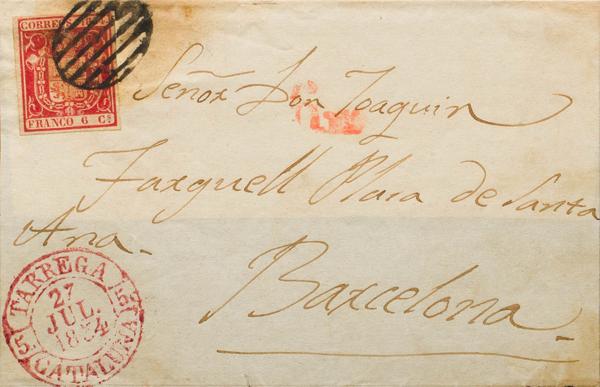 CORREOS 1854
FRANCO 6 Cs
Señor Don Joaquin
Farguell Plasa de Santa
Ana.
Barcelona
TARREGA
27
JUL.
1854
CATALUÑA